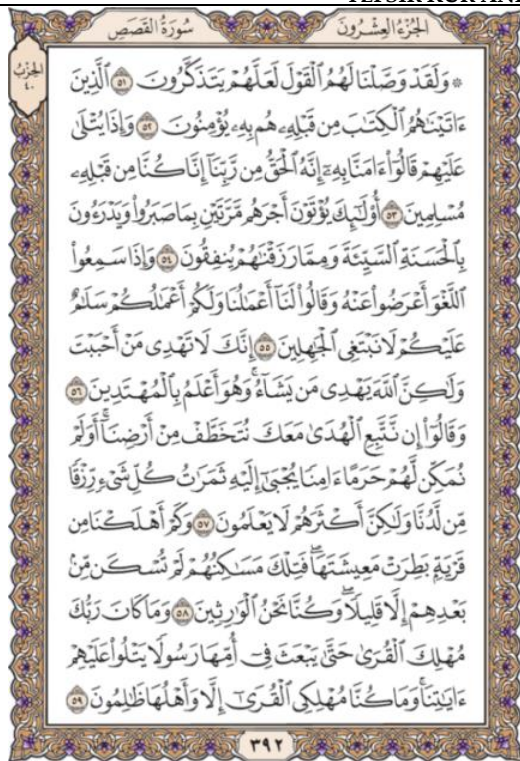 TEFSİR KUR'AN
الجُزْءُ العِشْرُونَ
سُورَةُ القَصَصِ
الحِزْبُ
٤٠
۞ وَلَقَدْ وَصَّلْنَا لَهُمُ ٱلْقَوْلَ لَعَلَّهُمْ يَتَذَكَّرُونَ ٥١ ٱلَّذِينَ
ءَاتَيْنَٰهُمُ ٱلْكِتَٰبَ مِن قَبْلِهِۦ هُم بِهِۦ يُؤْمِنُونَ ٥٢ وَإِذَا يُتْلَىٰ
عَلَيْهِمْ قَالُوٓا۟ ءَامَنَّا بِهِۦٓ إِنَّهُ ٱلْحَقُّ مِن رَّبِّنَآ إِنَّا كُنَّا مِن قَبْلِهِۦ
مُسْلِمِينَ ٥٣ أُو۟لَٰٓئِكَ يُؤْتَوْنَ أَجْرَهُم مَّرَّتَيْنِ بِمَا صَبَرُوا۟ وَيَدْرَءُونَ
بِٱلْحَسَنَةِ ٱلسَّيِّئَةَ وَمِمَّا رَزَقْنَٰهُمْ يُنفِقُونَ ٥٤ وَإِذَا سَمِعُوا۟
ٱللَّغْوَ أَعْرَضُوا۟ عَنْهُ وَقَالُوا۟ لَنَآ أَعْمَٰلُنَا وَلَكُمْ أَعْمَٰلُكُمْ سَلَٰمٌ
عَلَيْكُمْ لَا نَبْتَغِى ٱلْجَٰهِلِينَ ٥٥ إِنَّكَ لَا تَهْدِى مَنْ أَحْبَبْتَ
وَلَٰكِنَّ ٱللَّهَ يَهْدِى مَن يَشَآءُ ۚ وَهُوَ أَعْلَمُ بِٱلْمُهْتَدِينَ ٥٦
وَقَالُوٓا۟ إِن نَّتَّبِعِ ٱلْهُدَىٰ مَعَكَ نُتَخَطَّفْ مِنْ أَرْضِنَآ ۚ أَوَلَمْ
نُمَكِّن لَّهُمْ حَرَمًا ءَامِنًا يُجْبَىٰٓ إِلَيْهِ ثَمَرَٰتُ كُلِّ شَىْءٍ رِّزْقًا
مِّن لَّدُنَّا وَلَٰكِنَّ أَكْثَرَهُمْ لَا يَعْلَمُونَ ٥٧ وَكَمْ أَهْلَكْنَا مِن
قَرْيَةٍۭ بَطِرَتْ مَعِيشَتَهَا ۖ فَتِلْكَ مَسَٰكِنُهُمْ لَمْ تُسْكَن مِّنۢ
بَعْدِهِمْ إِلَّا قَلِيلًا ۖ وَكُنَّا نَحْنُ ٱلْوَٰرِثِينَ ٥٨ وَمَا كَانَ رَبُّكَ
مُهْلِكَ ٱلْقُرَىٰ حَتَّىٰ يَبْعَثَ فِىٓ أُمِّهَا رَسُولًا يَتْلُوا۟ عَلَيْهِمْ
ءَايَٰتِنَا ۚ وَمَا كُنَّا مُهْلِكِى ٱلْقُرَىٰٓ إِلَّا وَأَهْلُهَا ظَٰلِمُونَ ٥٩
٣٩٢